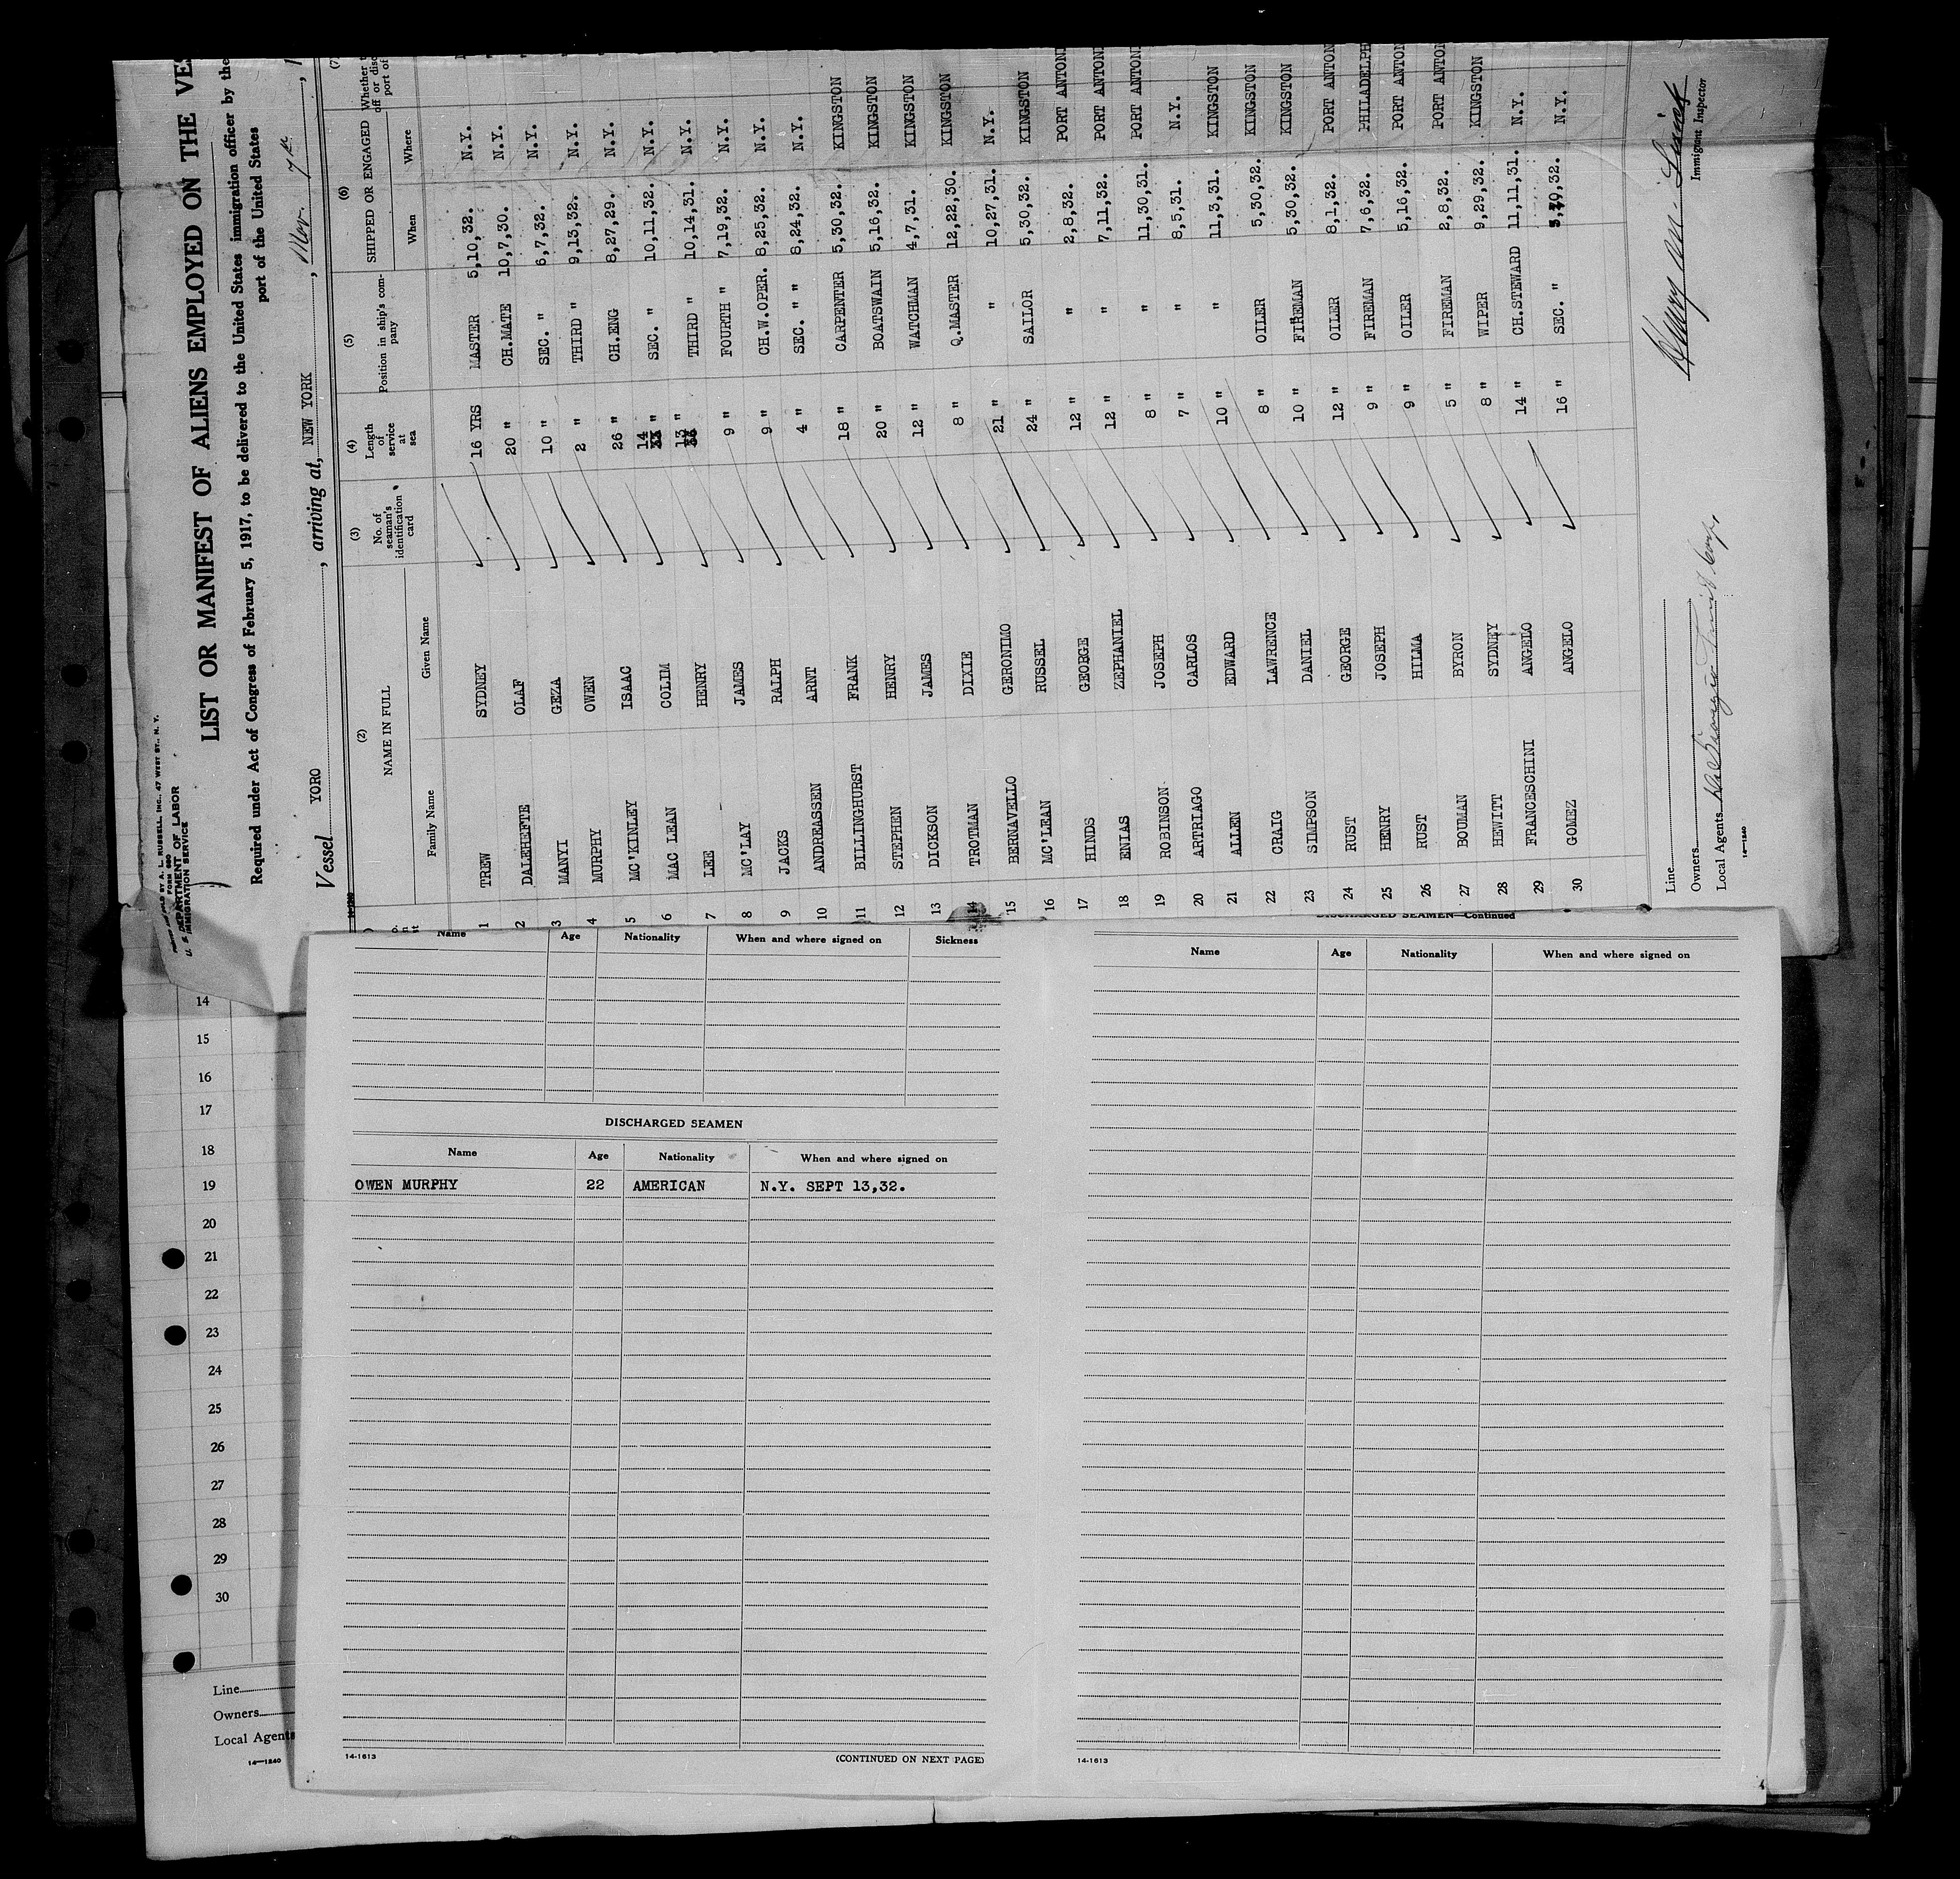 PRINTED AND SOLD BY A. L. RUSSELL, INC., 47 WEST ST., N. Y.
FORM 680
U. S. DEPARTMENT OF LABOR
IMMIGRATION SERVICE
LIST OR MANIFEST OF ALIENS EMPLOYED ON THE VES
Required under Act of Congress of February 5, 1917, to be delivered to the United States immigration officer by the
port of the United States
Vessel YORO, arriving at, NEW YORK, Nov. 7th, 1
(2) (3) (4) (5) (6) (7)
NAME IN FULL No. of seaman's identification card Length of service at sea Position in ship's company SHIPPED OR ENGAGED Whether t
off or disc
port of
Family Name Given Name When Where
1 TREW SYDNEY 16 YRS MASTER 5,10,32. N.Y.
2 DALEHEFTE OLAF 20 " CH.MATE 10,7,30. N.Y.
3 MANYI GEZA 10 " SEC. " 6,7,32. N.Y.
4 MURPHY OWEN 2 " THIRD " 9,13,32. N.Y.
5 MC'KINLEY ISAAC 26 " CH.ENG 8,27,29. N.Y.
6 MAC LEAN COLIM 14 " SEC. " 10,11,32. N.Y.
7 LEE HENRY 13 " THIRD " 10,14,31. N.Y.
8 MC'LAY JAMES 9 " FOURTH " 7,19,32. N.Y.
9 JACKS RALPH 9 " CH.W.OPER. 8,25,32. N.Y.
10 ANDREASSEN ARNT 4 " SEC. " " 8,24,32. N.Y.
11 BILLINGHURST FRANK 18 " CARPENTER 5,30,32. KINGSTON
12 STEPHEN HENRY 20 " BOATSWAIN 5,16,32. KINGSTON
13 DICKSON JAMES 12 " WATCHMAN 4,7,31. KINGSTON
14 TROTMAN DIXIE 8 " Q.MASTER 12,22,30. KINGSTON
15 BERNAVELLO GERONIMO 21 " " 10,27,31. N.Y.
16 MC'LEAN RUSSEL 24 " SAILOR 5,30,32. KINGSTON
17 HINDS GEORGE 12 " " 2,8,32. PORT ANTONI
18 ENIAS ZEPHANIEL 12 " " 7,11,32. PORT ANTONI
19 ROBINSON JOSEPH 8 " " 11,30,31. PORT ANTONI
20 ARTRIAGO CARLOS 7 " " 8,5,31. N.Y.
21 ALLEN EDWARD 10 " " 11,3,31. KINGSTON
22 CRAIG LAWRENCE 8 " OILER 5,30,32. KINGSTON
23 SIMPSON DANIEL 10 " FIREMAN 5,30,32. KINGSTON
24 RUST GEORGE 12 " OILER 8,1,32. PORT ANTON
25 HENRY JOSEPH 9 " FIREMAN 7,6,32. PHILADELPH
26 RUST HILMA 9 " OILER 5,16,32. PORT ANTON
27 BOUMAN BYRON 5 " FIREMAN 2,8,32. PORT ANTON
28 HEWITT SYDNEY 8 " WIPER 9,29,32. KINGSTON
29 FRANCESCHINI ANGELO 14 " CH.STEWARD 11,11,31. N.Y.
30 GOMEZ ANGELO 16 " SEC. " N.Y.
Line
Owners
Local Agents
14—1240
Immigrant Inspector
Name Age Nationality When and where signed on Sickness
DISCHARGED SEAMEN
Name Age Nationality When and where signed on
OWEN MURPHY 22 AMERICAN N.Y. SEPT 13,32.
14-1613 (CONTINUED ON NEXT PAGE)
DISCHARGED SEAMEN—Continued
Name Age Nationality When and where signed on
14-1613
14
15
16
17
18
19
20
21
22
23
24
25
26
27
28
29
30
Line
Owners
Local Agents
14—1240